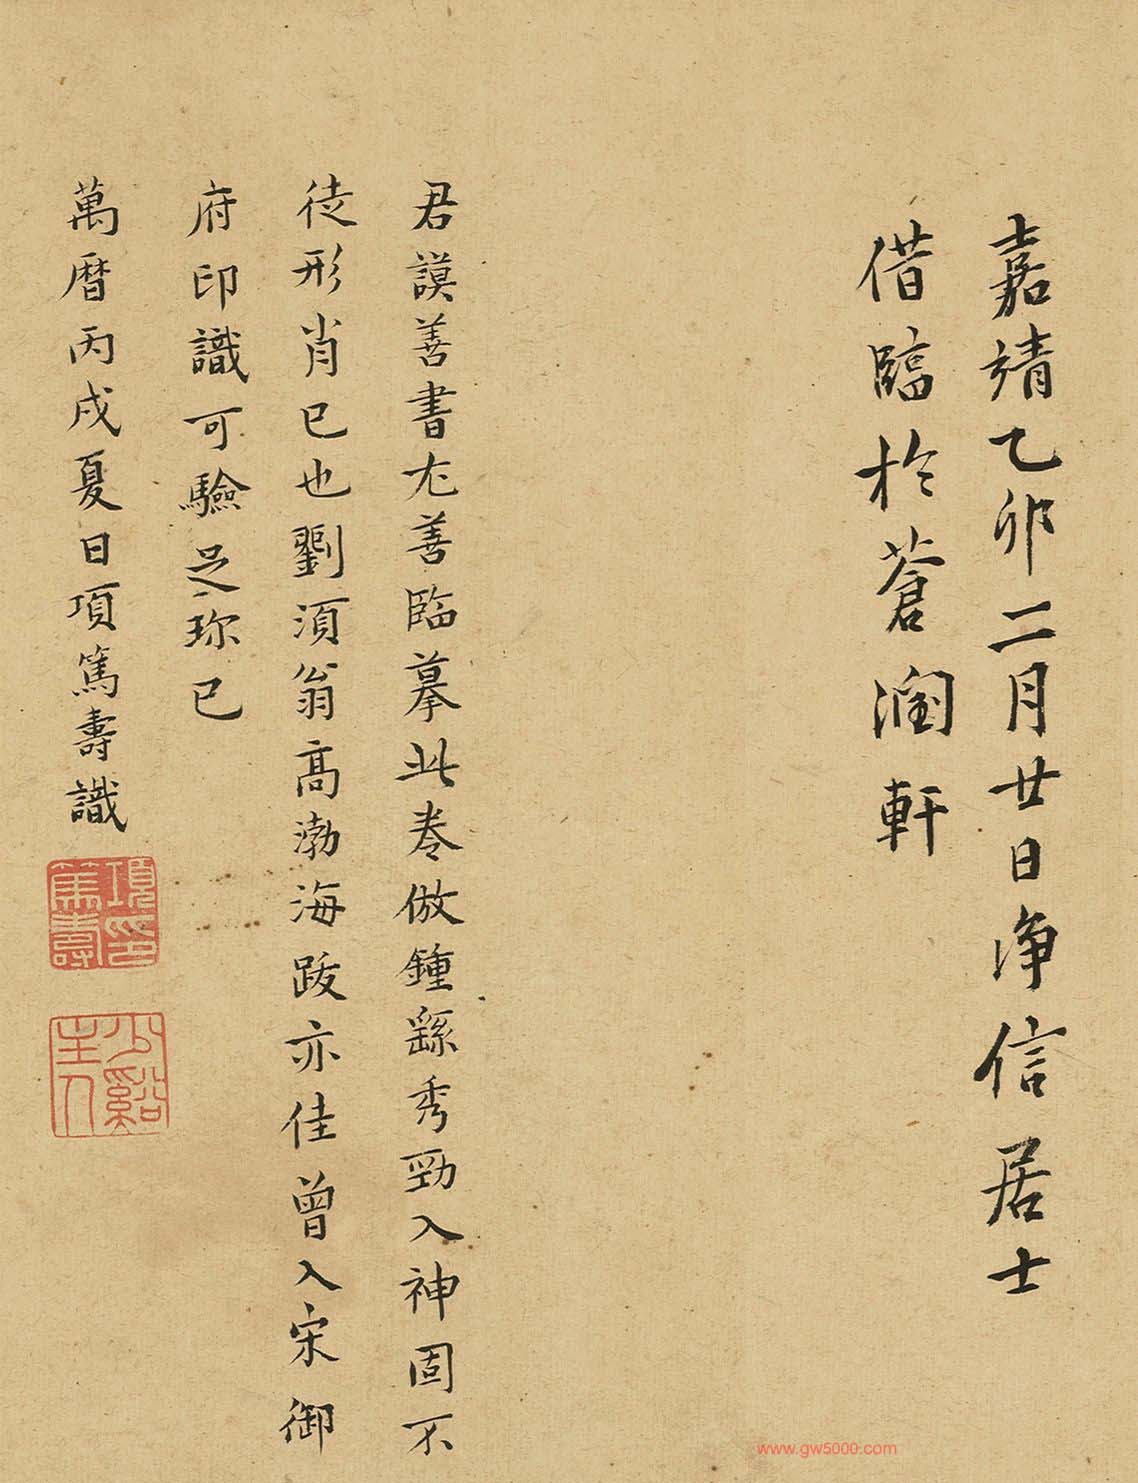 嘉靖乙卯二月廿日净信居士
借臨於蒼潤軒
君謨善書尤善臨摹此卷倣鍾繇秀勁入神固不
徒形肖已也劉須翁高渤海跋亦佳曾入宋御
府印識可驗足珎已
萬曆丙戌夏日項篤壽識
項篤壽印
少谿主人
www.gw5000.com